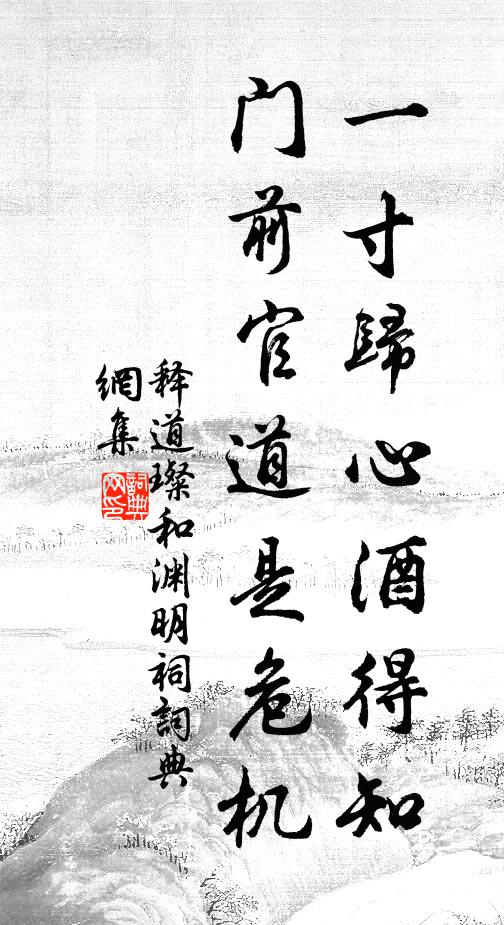 一寸歸心酒得知
門前官道是危机
释道璨和渊明祠詞典
網集
詞典
网印